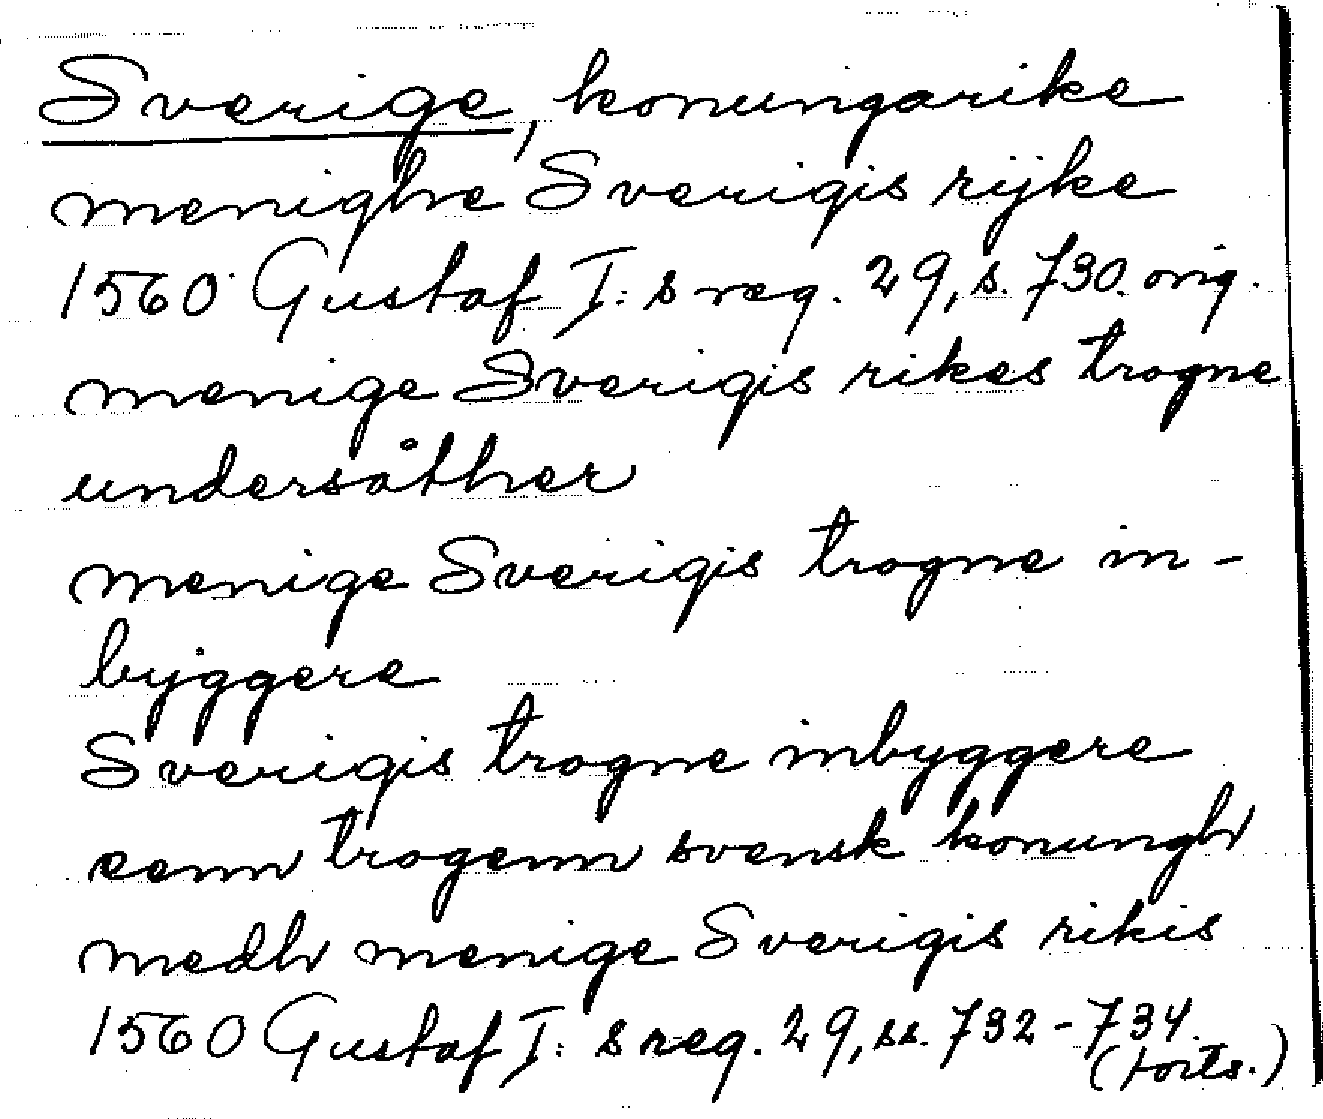 Sverige, konungarike
menighe Sverigis rijke
1560 Gustaf I:s reg. 29, s. 730. orig.
menige Sverigis rikes trogne
undersåther
menige Sverigis trogne in-
byggere
Sverigis trogne inbyggere
eenn trogenn svensk konungh
medh menige Sverigis rikis
1560 Gustaf I:s reg. 29, ss. 732-734.
(forts.)